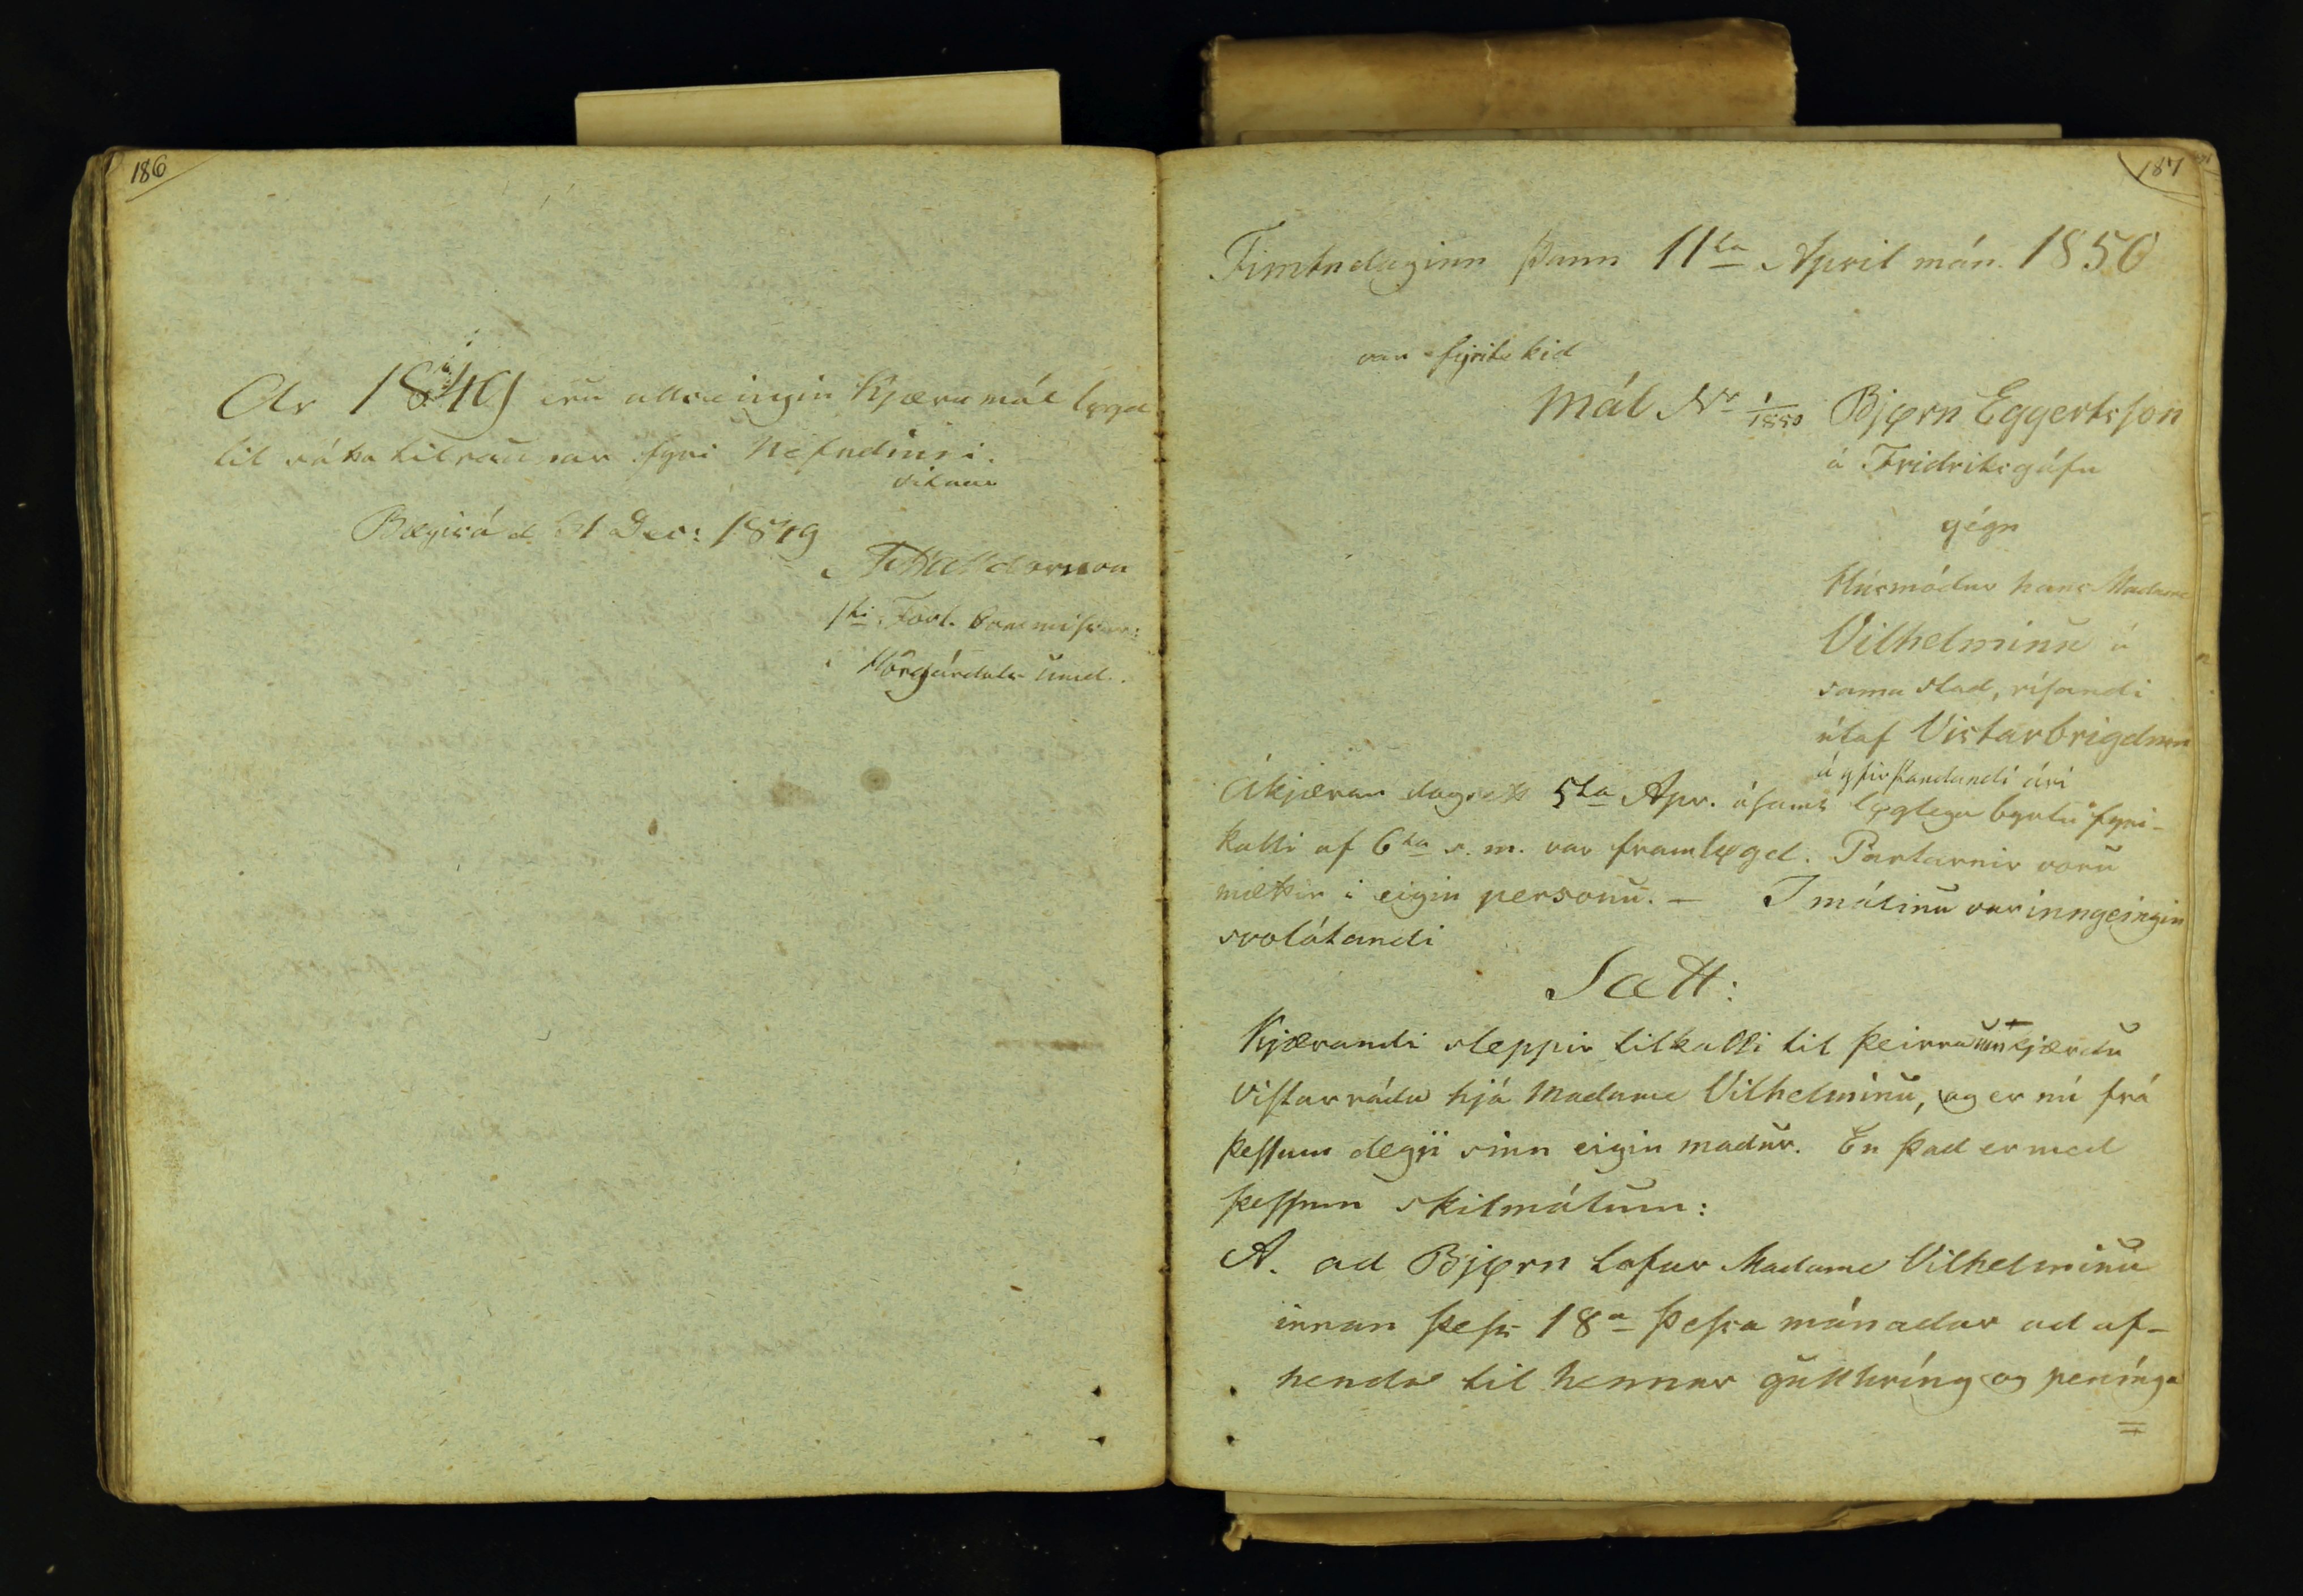 186
Ár 1849 eru alls eingin kjæru mál løgd
til sátta tilraunar fyri Nefndinni.
vitnar
Bægisá d. 31 Dec: 1849
1sti Forl. Commissar:
í Hörgárdals umd.
187
Fimtudaginn þann 11ta April mán. 1850
var fyritekid
Mál Nr 1/1850 Bjørn Eggertsson
á Fridriksgáfu
gégn
Húsmódur hans Madame
Vilhelminu á
sama stad, rísandi
útaf Vistarbrigdum
á yfirstandandi ári
Ákjæran dagsett 5ta Apr. ásamt løglega byrtu fyri-
kalli af 6ta s. m. var framløgd. Partarnir voru
mættir i eigin personu. — I málinu var inngeingin
svolátandi
Sætt:
Kjærandi sleppir tilkalli til þeirra umkjærdu
vistarráda hjá Madame Vilhelminu, og er nú frá
þessum degji sinn eigin madur. En þad er med
þessum skilmálum:
A. ad Bjørn lofar Madame Vilhelminu
innan þess 18a þessa mánadar ad af-
henda til hennar gullhríng og penínga
=